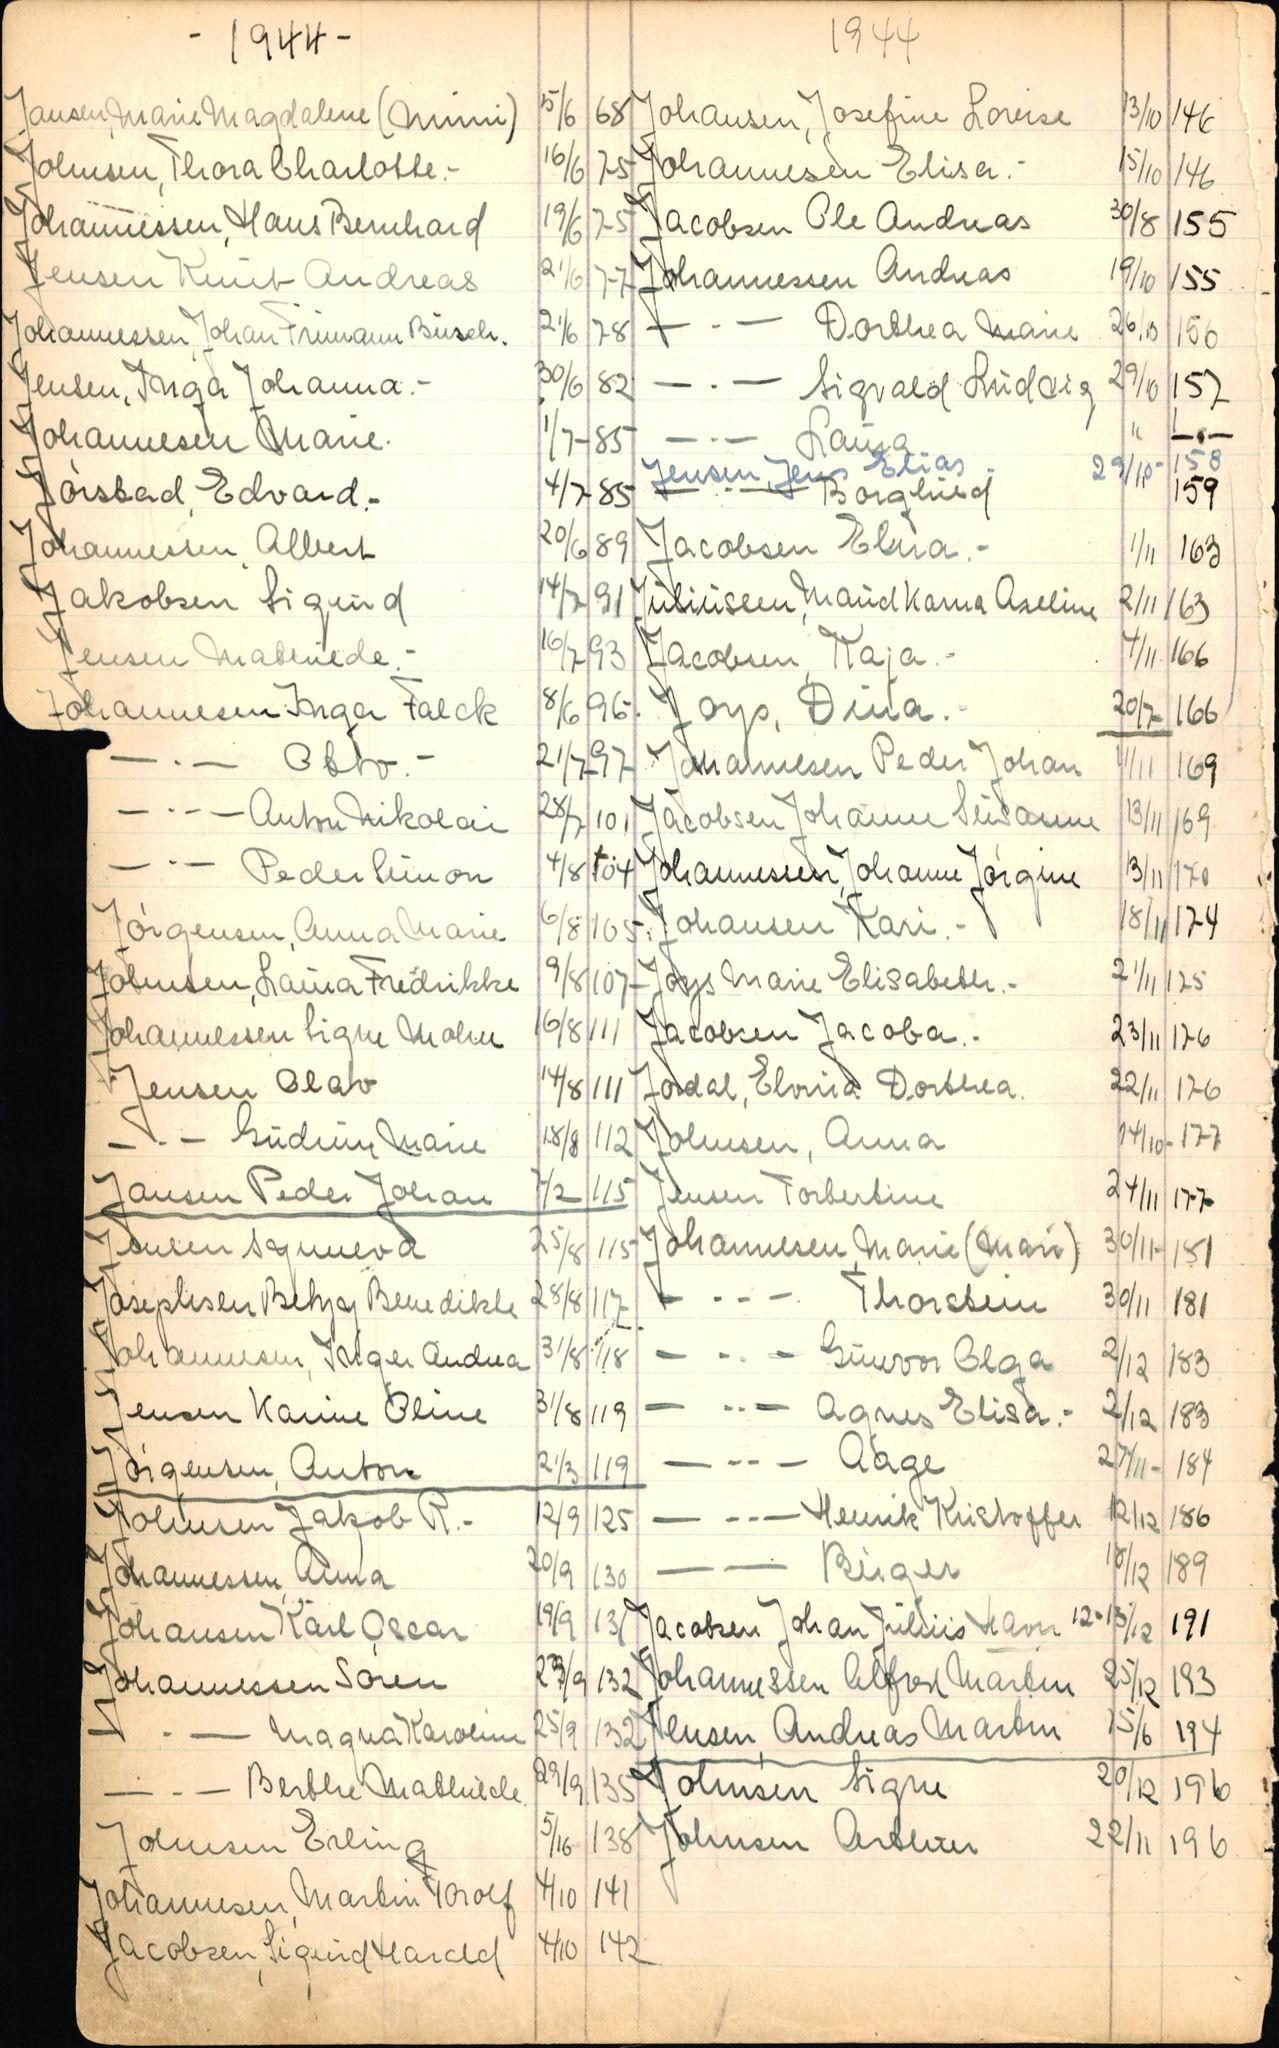 - 1944 -
Jansen, Marie Magdalene (Mimi) 15/6 68
Johnsen, Thora Charlotte.- 16/6 75
Johannessen, Hans Bernhard 19/6 75
Jensen Knut Andreas 21/6 77
Johannessen, Johan Frimann Busch. 21/6 78
Jensen, Inga Johanna.- 30/6 82
Johannesen Marie. 1/7- 85
Jörstad, Edvard.- 4/7 85
Johannessen, Albert 20/6 89
Jakobsen Sigurd 14/7 91
Jensen Mathilde.- 16/7 93
Johannesen Inga Falck 8/6 96
— · — Otto.- 21/7 97
— · — Anton Nikolai 28/7 101
— · — Peder Simon 4/8 104
Jörgensen, Anna Marie 6/8 105
Johnsen, Laura Fredrikke 9/8 107
Johannessen Signe 16/8 111
Jensen Olav 14/8 111
— · — Gudrun Marie 18/8 112
Jansen Peder Johan 7/2 115
Jensen Synneva 25/8 115
Josephsen Betzy Benedikte 28/8 117
Johannesen, Inger Andrea 31/8 118
Jensen Karine Oline 31/8 119
Jörgensen, Anton 21/3 119
Johnsen Jakob R.- 12/9 125
Johannessen, Anna 20/9 130
Johansen Karl Oscar 19/9 131
Johannessen Sören 23/9 132
· — Magna Karoline 25/9 132
— · — Berthe Mathilde 29/9 135
Johnsen Erling 5/10 138
Johannesen, Martin Harolf 4/10 141
Jacobsen, Sigurd Harald 4/10 142
1944
Johansen, Josefine Lovise 13/10 146
Johannesen Elisa.- 15/10 146
Jacobsen Ole Andreas 30/8 155
Johannessen Andreas 19/10 155
— · — Dorthea Marie 26/10 156
— · — Sigvald Ludvig 29/10 157
— · — Laura " — · —
Jensen, Jens Elias. 29/10- 158
— · — Borghild 159
Jacobsen Elna.- 1/11 163
Juliussen, Maud Karna Aseline 2/11 163
Jacobsen, Kaja.- 4/11 166
Joys, Dina.- 20/7 166
Johannesen Peder Johan 11/11 169
Jacobsen Johanne Susanne 13/11 169
Johannessen, Johanne Jörgine 13/11 170
Johansen Kari.- 18/11 174
Joys Marie Elisabeth.- 21/11 175
Jacobsen Jacoba.- 23/11 176
Jordal, Elvina Dorthea. 22/11 176
Johnsen, Anna 14/10- 177
Jensen Torbertine 24/11 177
Johannesen, Marie (Mari) 30/11- 181
— · · — Thorstein 30/11 181
— · · — Gunvor Olga 2/12 183
— · · — Agnes Elisa.- 2/12 183
— · · — Aage 27/11- 184
— · · — Henrik Kristoffer 12/12 186
— — Birger 18/12 189
Jacobsen Johan Julius Havn 12-13/12 191
Johannessen Alfred Martin 25/12 193
Jensen, Andreas Martin 15/6 194
Johnsen Signe 20/12 196
Johnsen Arthur 22/11 196